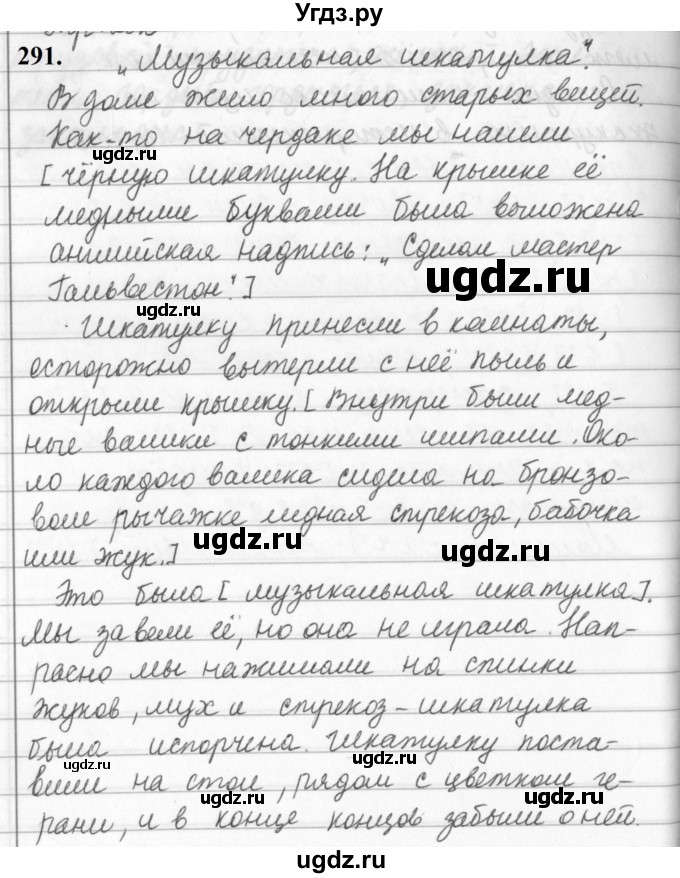 Угдз.ру
291. „Музыкальная шкатулка".
В доме жило много старых вещей.
Как-то на чердаке мы нашли
ugdz.ru
[чёрную шкатулку. На крышке её
медными буквами была выложена
английская надпись: „Сделал мастер
ugdz.ru
Гальвестон".]
ugdz.ru
Шкатулку принесли в комнаты,
осторожно вытерли с неё пыль и
открыли крышку. [Внутри были мед-
ные валики с тонкими шипами. Око-
ло каждого валика сидела на бронзо-
вом рычажке медная стрекоза, бабочка
ugdz.ru
или жук.]
ugdz.ru
Это была [музыкальная шкатулка].
Мы завели её, но она не играла. Нап-
расно мы нажимали на спинки
жуков, мух и стрекоз – шкатулка
была испорчена. Шкатулку поста-
ugdz.ru
вили на стол, рядом с цветком ге-
ugdz.ru
рани, и в конце концов забыли о ней.
ugdz.ru